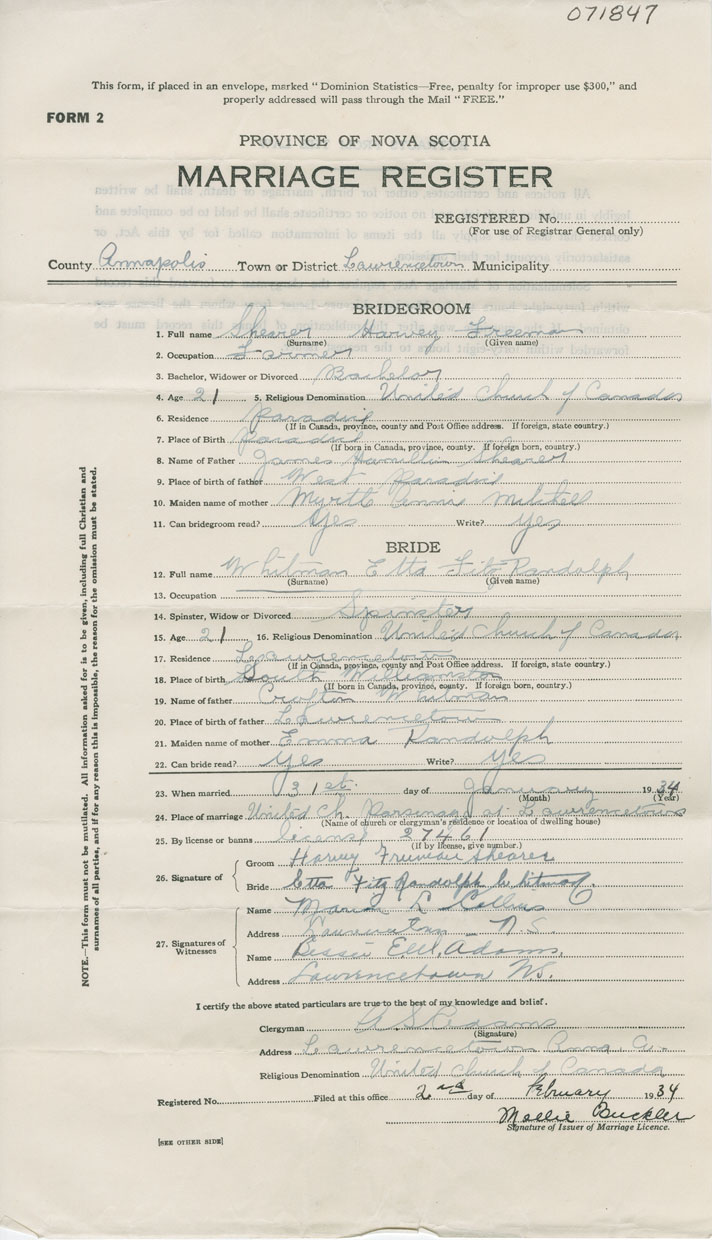 071847
This form, if placed in an envelope, marked "Dominion Statistics—Free, penalty for improper use $300," and
properly addressed will pass through the Mail "FREE."
FORM 2
PROVINCE OF NOVA SCOTIA
MARRIAGE REGISTER
REGISTERED No.
(For use of Registrar General only)
County Annapolis Town or District Lawrencetown Municipality
BRIDEGROOM
1. Full name Shearer Harvey Freeman
(Surname) (Given name)
2. Occupation Farmer
3. Bachelor, Widower or Divorced Bachelor
4. Age 21 5. Religious Denomination United Church of Canada
6. Residence Paradise
(If in Canada, province, county and Post Office address. If foreign, state country.)
7. Place of Birth Paradise
(If born in Canada, province, county. If foreign born, country.)
8. Name of Father James Hamilton Shearer
9. Place of birth of father West Paradise
10. Maiden name of mother Myrtle Annie
11. Can bridegroom read? Yes Write? Yes
BRIDE
12. Full name Whitman Etta Fitz Randolph
(Surname) (Given name)
13. Occupation
14. Spinster, Widow or Divorced Spinster
15. Age 21 16. Religious Denomination United Church of Canada
17. Residence Lawrencetown
(If in Canada, province, county and Post Office address. If foreign, state country.)
18. Place of birth South Williamston
(If born in Canada, province, county. If foreign born, country.)
19. Name of father Crofton Whitman
20. Place of birth of father Lawrencetown
21. Maiden name of mother Emma Randolph
22. Can bride read? Yes Write? Yes
23. When married 31st day of January 1934
(Month) (Year)
24. Place of marriage United Ch. Parsonage at Lawrencetown
(Name of church or clergyman's residence or location of dwelling house)
25. By license or banns license 27461
(If by license, give number.)
26. Signature of
Groom Harvey Freeman Shearer
Bride Etta Fitz Randolph Whitman
27. Signatures of Witnesses
Name L Collins
Address Lawrencetown N S
Name Bessie Adams
Address Lawrencetown NS.
I certify the above stated particulars are true to the best of my knowledge and belief.
Clergyman
(Signature)
Address Lawrencetown Anna. Co.
Religious Denomination United Church of Canada
Registered No. Filed at this office 2nd day of February 1934
Mollie Buckler
Signature of Issuer of Marriage Licence.
[SEE OTHER SIDE]
NOTE.—This form must not be mutilated. All information asked for is to be given, including full Christian and
surnames of all parties, and if for any reason this is impossible, the reason for the omission must be stated.